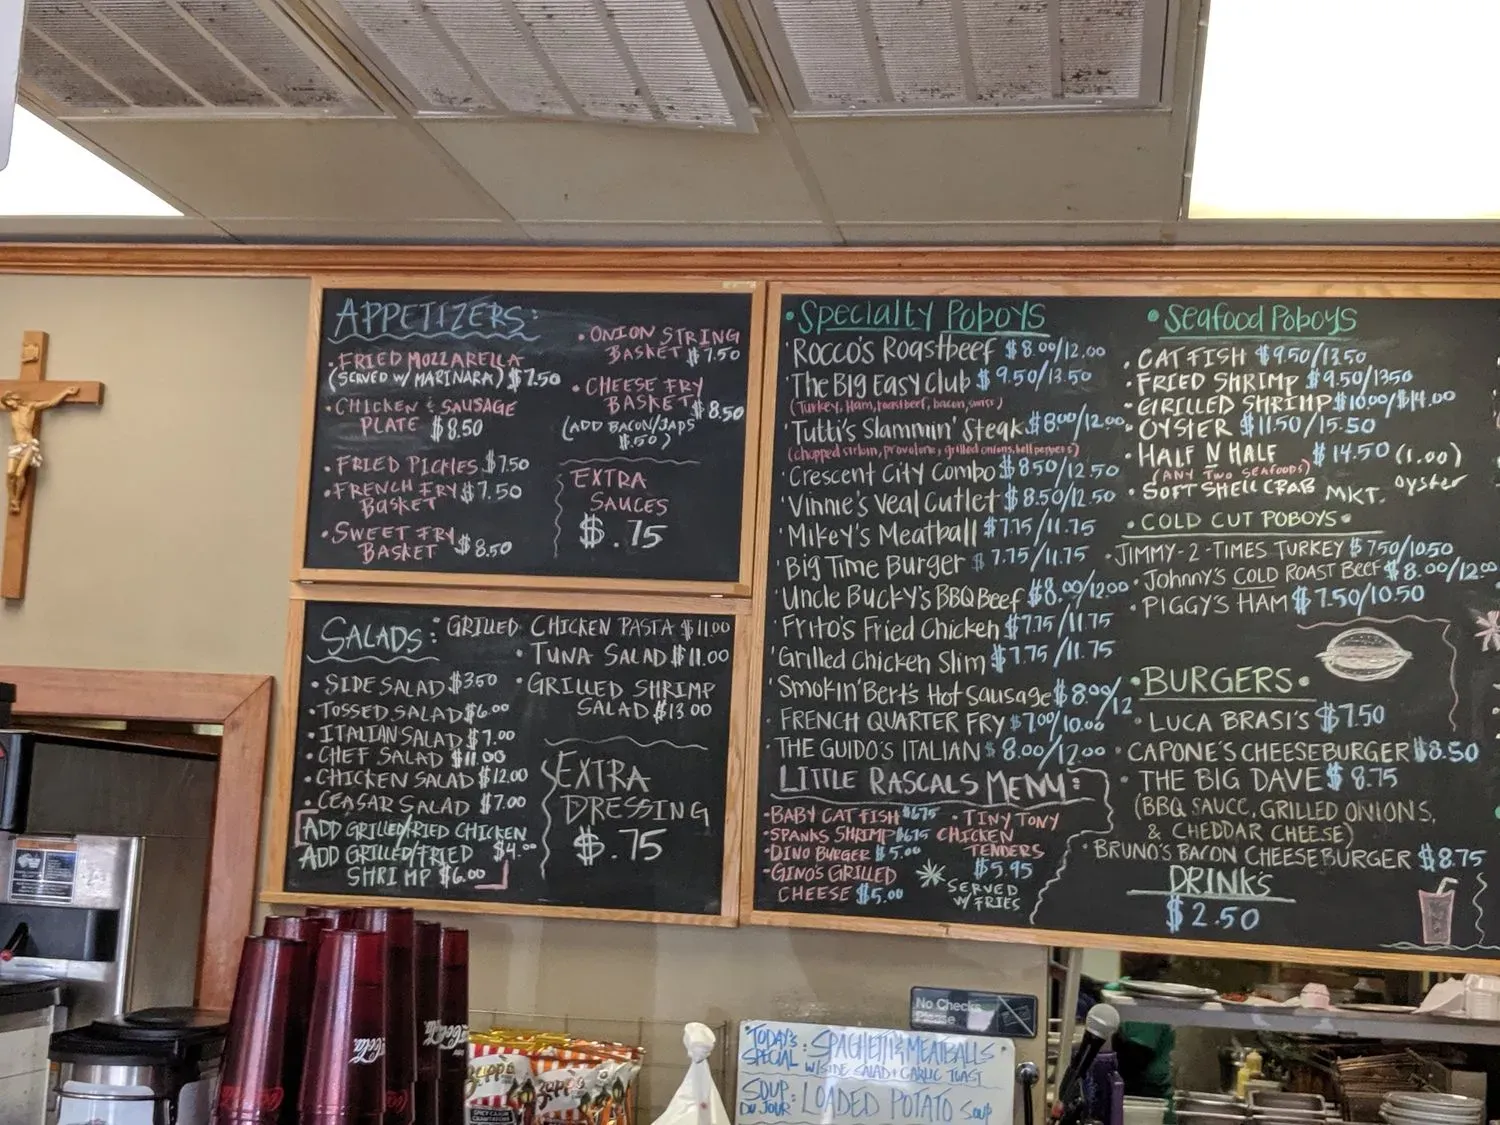 APPETIZERS:
• FRIED MOZZARELLA
(SERVED W/ MARINARA) $7.50
• CHICKEN & SAUSAGE
PLATE $8.50
• FRIED PICKLES $7.50
• FRENCH FRY $7.50
BASKET
• SWEET FRY $8.50
BASKET
• ONION STRING
BASKET $7.50
• CHEESE FRY
BASKET $8.50
(ADD BACON/JAPS
$.50)
EXTRA
SAUCES
$.75
SALADS:
• GRILLED CHICKEN PASTA $11.00
• TUNA SALAD $11.00
• GRILLED SHRIMP
SALAD $13.00
• SIDE SALAD $3.50
• TOSSED SALAD $6.00
• ITALIAN SALAD $7.00
• CHEF SALAD $11.00
• CHICKEN SALAD $12.00
• CEASAR SALAD $7.00
ADD GRILLED/FRIED CHICKEN
$4.00
ADD GRILLED/FRIED
SHRIMP $6.00
EXTRA
DRESSING
$.75
• Specialty Poboys
• Rocco's Roastbeef $8.00/12.00
• The Big Easy Club $9.50/13.50
(Turkey, Ham, roastbeef, bacon, swiss)
• Tutti's Slammin' Steak $8.00/12.00
(chopped sirloin, provolone, grilled onions, bell peppers)
• Crescent City Combo $8.50/12.50
• Vinnie's Veal Cutlet $8.50/12.50
• Mikey's Meatball $7.75/11.75
• Big Time Burger $7.75/11.75
• Uncle Bucky's BBQ Beef $8.00/12.00
• Frito's Fried Chicken $7.75/11.75
• Grilled Chicken Slim $7.75/11.75
• Smokin' Bert's Hot Sausage $8.00/12
• FRENCH QUARTER FRY $7.00/10.00
• THE GUIDO'S ITALIAN $8.00/12.00
LITTLE RASCALS MENU:
• BABY CAT FISH $6.75
• SPANKS SHRIMP $6.75
• DINO BURGER $5.00
• GINO'S GRILLED
CHEESE $5.00
• TINY TONY
CHICKEN
TENDERS
$5.95
SERVED
W/ FRIES
• Seafood Poboys
• CAT FISH $9.50/13.50
• FRIED SHRIMP $9.50/13.50
• GRILLED SHRIMP $10.00/$14.00
• OYSTER $11.50/15.50
• HALF N HALF $14.50 (1.00)
(ANY TWO SEAFOODS) oyster
• SOFT SHELL CRAB MKT.
• COLD CUT POBOYS •
• JIMMY-2-TIMES TURKEY $7.50/10.50
• Johnny's COLD ROAST BEEF $8.00/12.00
• PIGGY'S HAM $7.50/10.50
• BURGERS •
• LUCA BRASI'S $7.50
• CAPONE'S CHEESEBURGER $8.50
• THE BIG DAVE $8.75
(BBQ SAUCE, GRILLED ONIONS,
& CHEDDAR CHEESE)
• BRUNO'S BACON CHEESEBURGER $8.75
DRINKS
$2.50
No Checks
Please
TODAY'S
SPECIAL: SPAGHETTI & MEATBALLS
W/ SIDE SALAD + GARLIC TOAST
SOUP
DU JOUR: LOADED POTATO SOUP
Zapp's
Zapp's
SPICY CAJUN
CRAWTATORS
Coca-Cola